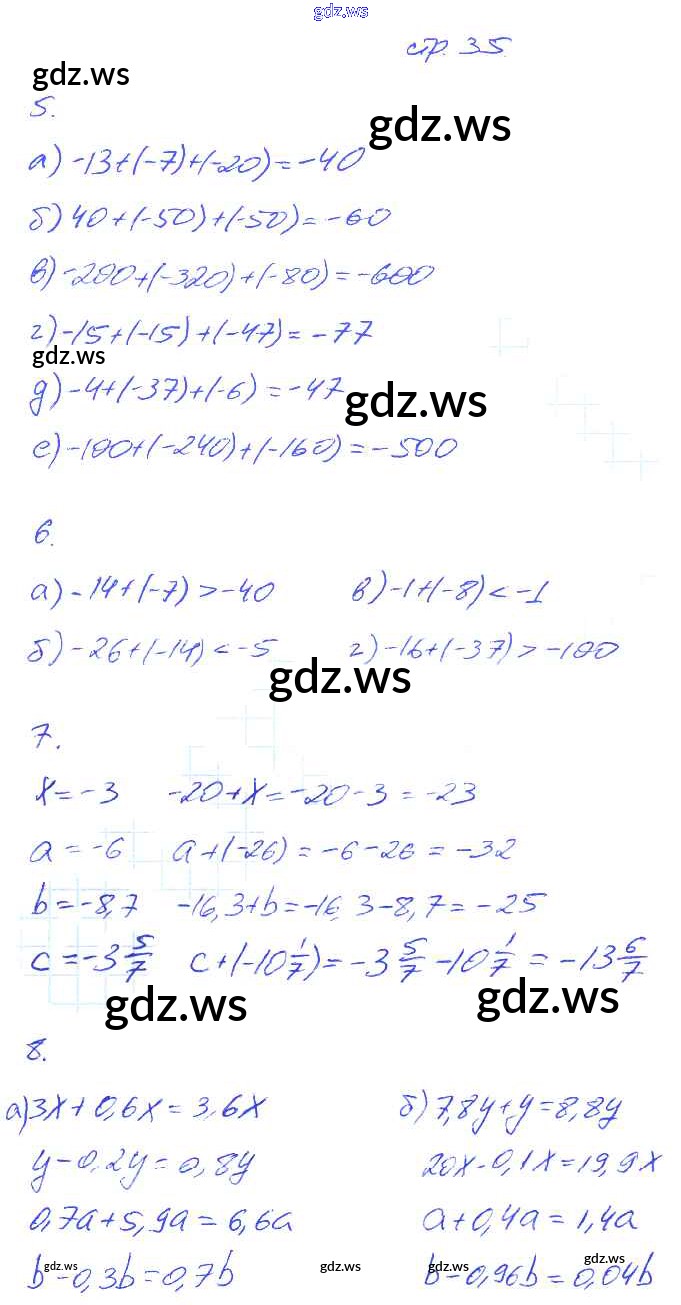 gdz.ws
стр. 35
gdz.ws
5.
gdz.ws
а) -13+(-7)+(-20)=-40
б) 40+(-50)+(-50)=-60
в) -200+(-320)+(-80)=-600
г) -15+(-15)+(-47)=-77
gdz.ws
д) -4+(-37)+(-6)=-47
gdz.ws
е) -100+(-240)+(-160)=-500
6.
а) -14+(-7)>-40 в) -1+(-8)<-1
б) -26+(-14)<-5 г) -16+(-37)>-100
gdz.ws
7.
x=-3 -20+x=-20-3=-23
a=-6 a+(-26)=-6-26=-32
b=-8,7 -16,3+b=-16,3-8,7=-25
c=-3 5/7 c+(-10 1/7)=-3 5/7-10 1/7=-13 6/7
gdz.ws gdz.ws
8.
а) 3x+0,6x=3,6x б) 7,8y+y=8,8y
y-0,2y=0,8y 20x-0,1x=19,9x
0,7a+5,9a=6,6a a+0,4a=1,4a
gdz.ws gdz.ws gdz.ws
b-0,3b=0,7b b-0,96b=0,04b